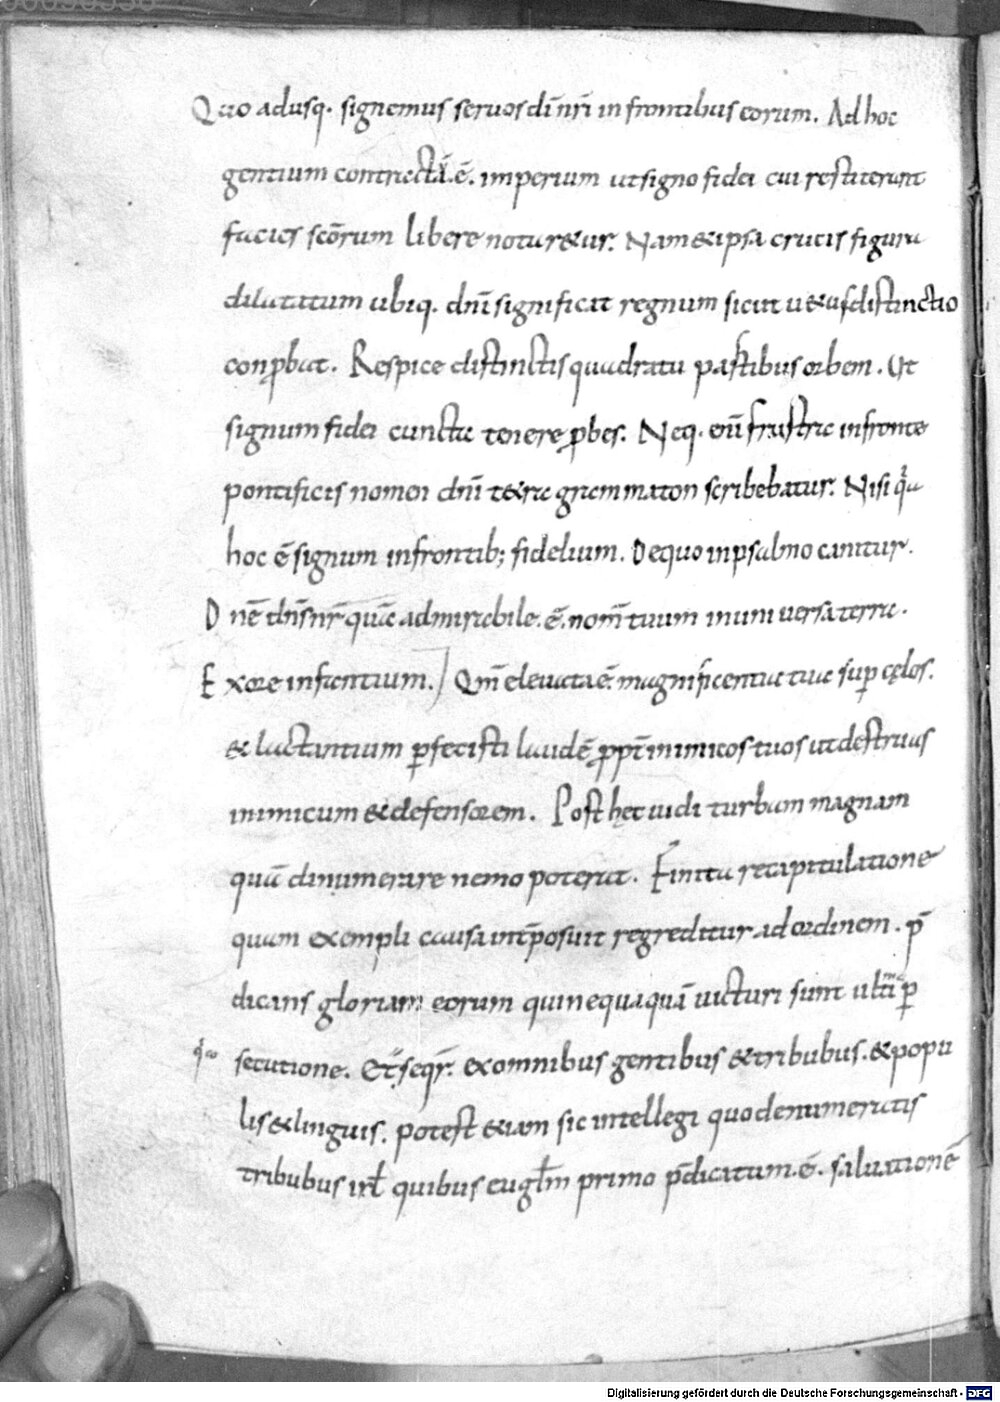 Quo adusq. signemus seruos dī nr̄i in frontibus eorum. Ad hoc
gentium contractū. ē. imperium ut signo fidei cui restiterunt
facies scōrum libere notaretur. Nam & ipsa crucis figura
dilatatum ubiq. dnī significat regnum sicut uetus distinctio
conprbat. Respice distinctis quadratū partibus orbem. Ut
signum fidei cuncta tenere prbes. Neq. enī frustra in fronte
pontificis nomen dnī tetra grammaton scribebatur. Nisi qa
hoc ē signum in frontib; fidelium. De quo in psalmo canitur.
Dnē dn̄s nr̄ quā admirabile. ē. nom̄ tuum in uniuersa terra.
Ex ore infantium. Qm̄ eleuata ē. magnificentia tua sup cęlos.
& lactantium pfecisti laudē ppt̄ inimicos tuos ut destruas
inimicum & defensorem. Post hęc uidi turbam magnam
quā dinumerare nemo poterat. Finita recapitulatione
quam exempli causa int̄posuit regreditur ad ordinem. p̄
dicans gloriam eorum qui nequaquā uicturi sunt ultīma p
secutione. Et seqr̄. ex omnibus gentibus & tribubus. & popu
lis & linguis. potest etiam sic intellegi quod enumeratis
tribubus isrl quibus euglm̄ primo p̄dicatum. ē. saluationē
Digitalisierung gefördert durch die Deutsche Forschungsgemeinschaft - DFG